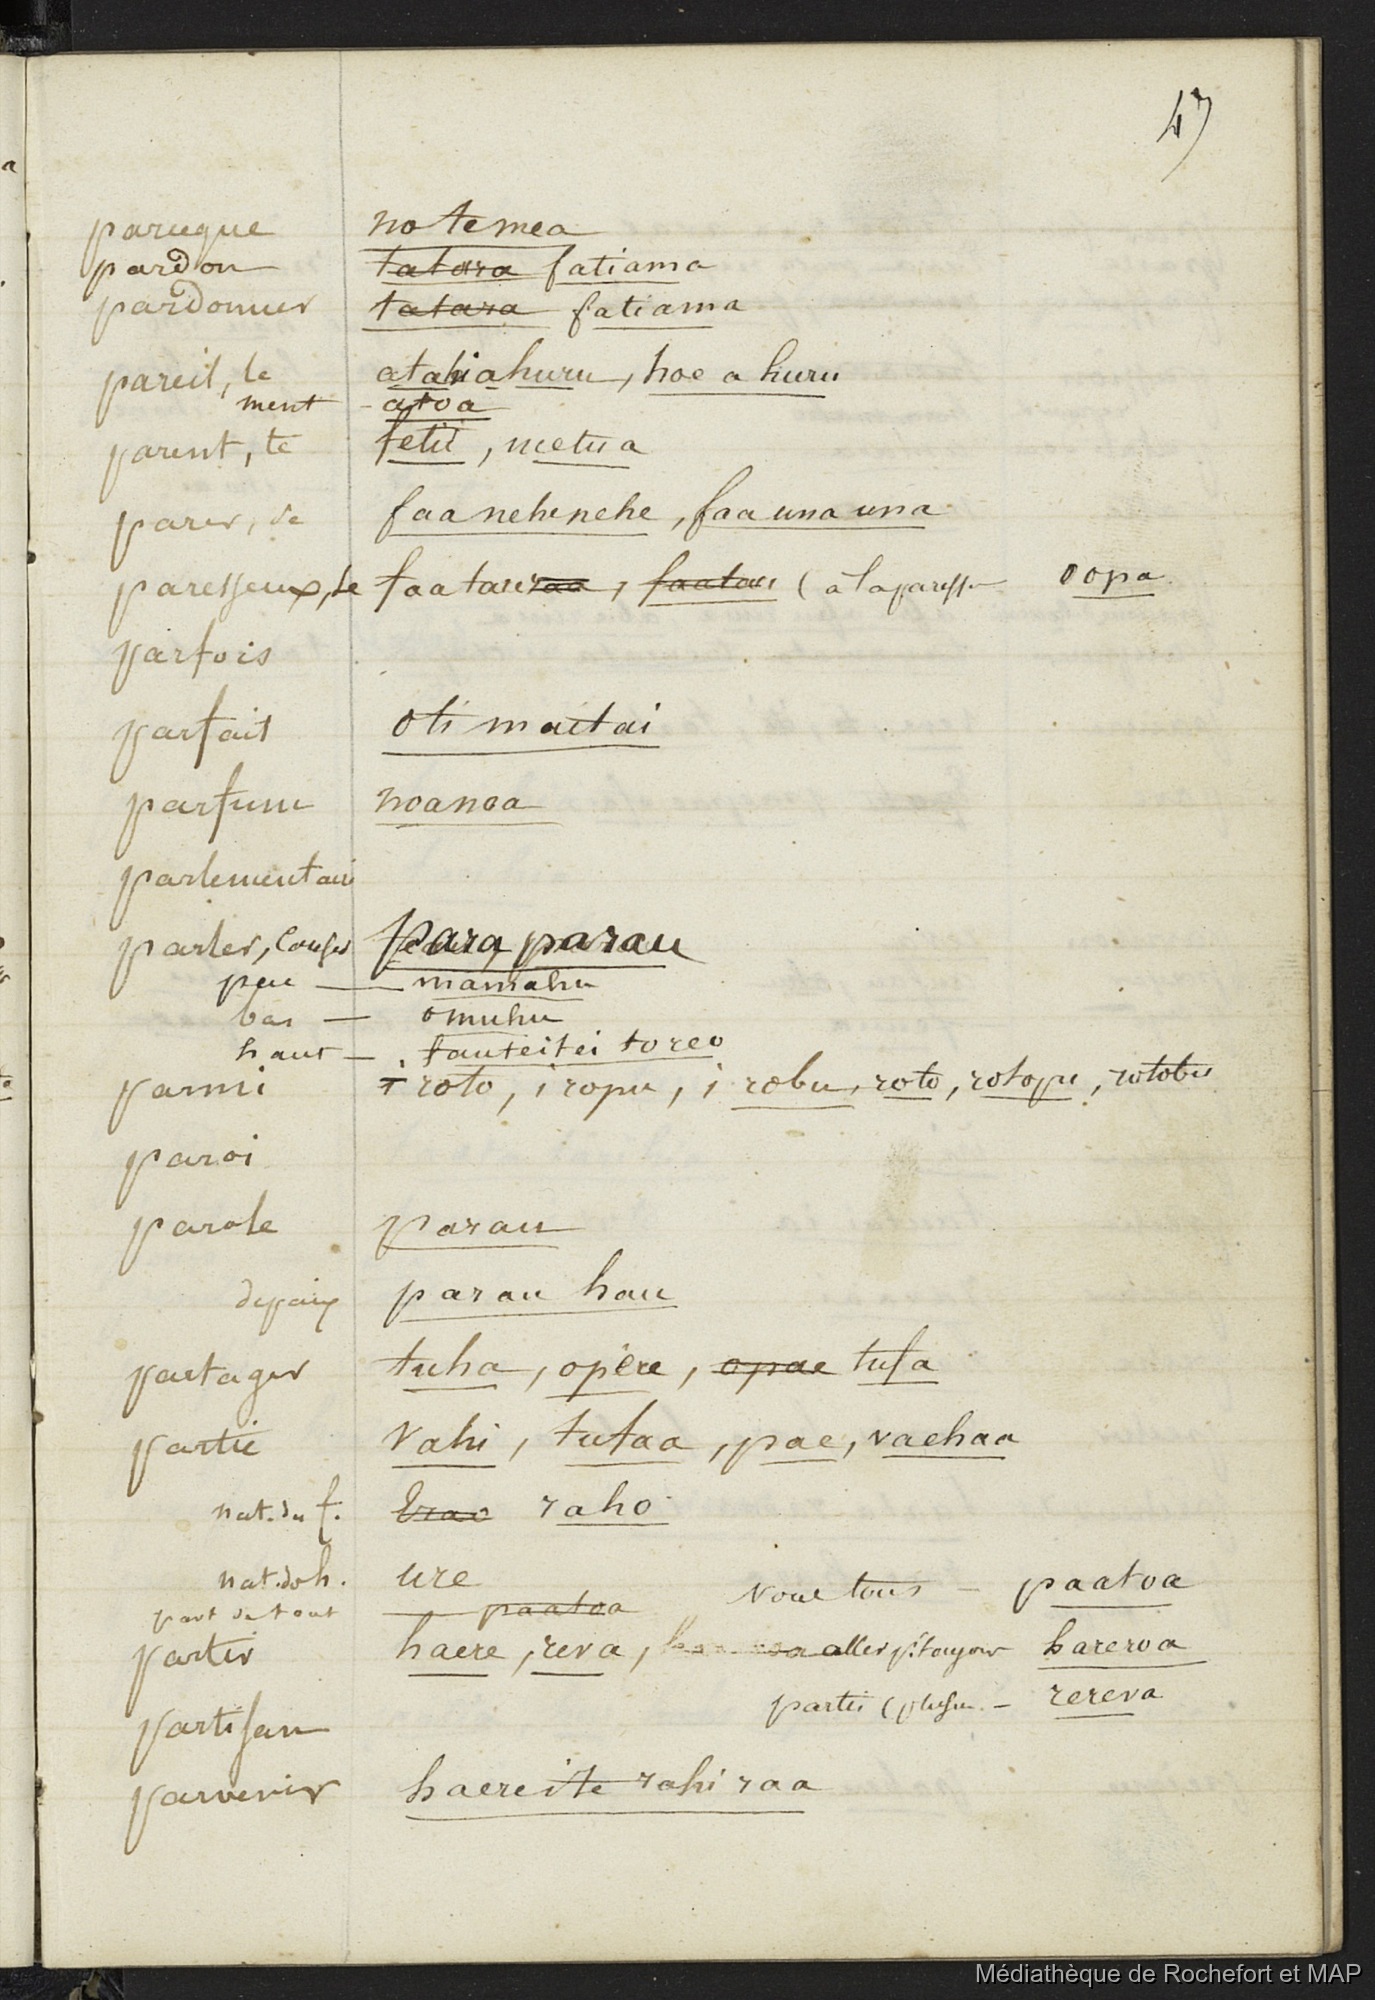 47
parceque notemea
pardon tatara fatiama
pardonner tatara fatiama
pareil, le atahiahuru, hoe a huru
ment - atoa
parent, te fetii, metua
parer, se faanehenehe, faaunauna
paresseux, se faataueraa, faatau (à la paresse oopa
parfois
parfait oti maitai
parfum noanoa
parlementair
parler, causer parau
peu — mamahu
bas — omuhu
haut — tauteitei toreo
parmi i roto, i ropu, i robu, roto, rotopu, rotobu
paroi
parole parau
de paix parau hau
partager tuha, opère, opae tufa
partie vahi, tufaa, pae, vaehaa
nat. du f. Erao raho
nat. do h. ure
part de tout — paatoa
tous — paatoa
partir haere, reva, aller pr. toujour hareroa
partir (plusieu. — rereva
partisan
parvenir haereite rahiraa
Médiathèque de Rochefort et MAP